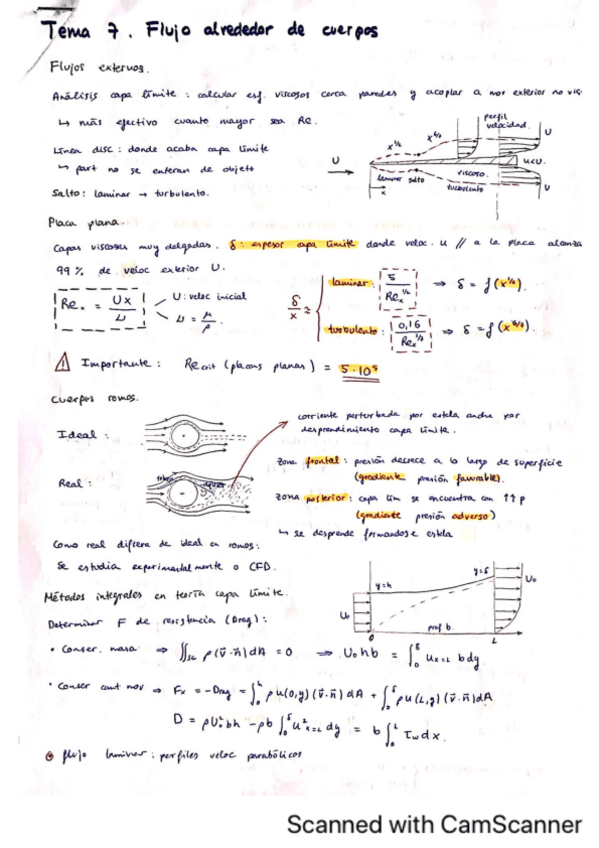 Tema 7. Flujo alrededor de cuerpos
Flujos externos.
Análisis capa límite: calcular esf. viscosos cerca paredes y acoplar a mov exterior no vis
↳ más efectivo cuanto mayor sea Re.
Línea disc: donde acaba capa límite
↳ part no se enteran de objeto
Salto: laminar → turbulento.
perfil
velocidad.
x^1/2
x^6/7
U
U
u<U
U
viscoso.
laminar
salto
turbulento
x
Placa plana.
Capas viscosas muy delgadas. δ: espesor capa límite donde veloc. u // a la placa alcanza
99% de veloc exterior U.
Re_x = Ux/ν
U: veloc inicial
ν = μ/ρ
δ/x ≈
laminar: 5/Re_x^1/2 ⇒ δ = f(x^1/2).
turbulento: 0,16/Re_x^1/7 ⇒ δ = f(x^6/7).
⚠ Importante: Re crit (placas planas) = 5·10⁵
Cuerpos romos.
Ideal:
Real:
corriente perturbada por estela ancha por
desprendimiento capa límite.
zona frontal: presión decrece a lo largo de superficie
(gradiente presión favorable).
zona posterior: capa lím se encuentra con ↑↑ p
(gradiente presión adverso)
↳ se desprende formandose estela
Como real difiere de ideal en romos:
Se estudia experimentalmente o CFD.
Métodos integrales en teoría capa límite.
Determinar F de resistencia (Drag):
y=h
y=δ
U₀
U₀
prof b.
0
L
• Conser. masa ⇒ ∬sc ρ(v̄·n̄)dA = 0 ⇒ U₀hb = ∫₀^δ u_x=L b dy
• Conser cant mov ⇒ Fx = -Drag = ∫₀^h ρu(0,y)(v̄·n̄)dA + ∫₀^δ ρu(L,y)(v̄·n̄)dA
D = ρU₀²bh - ρb ∫₀^δ u²_x=L dy = b ∫₀^L τw dx.
flujo laminar: perfiles veloc parabólicos
Scanned with CamScanner